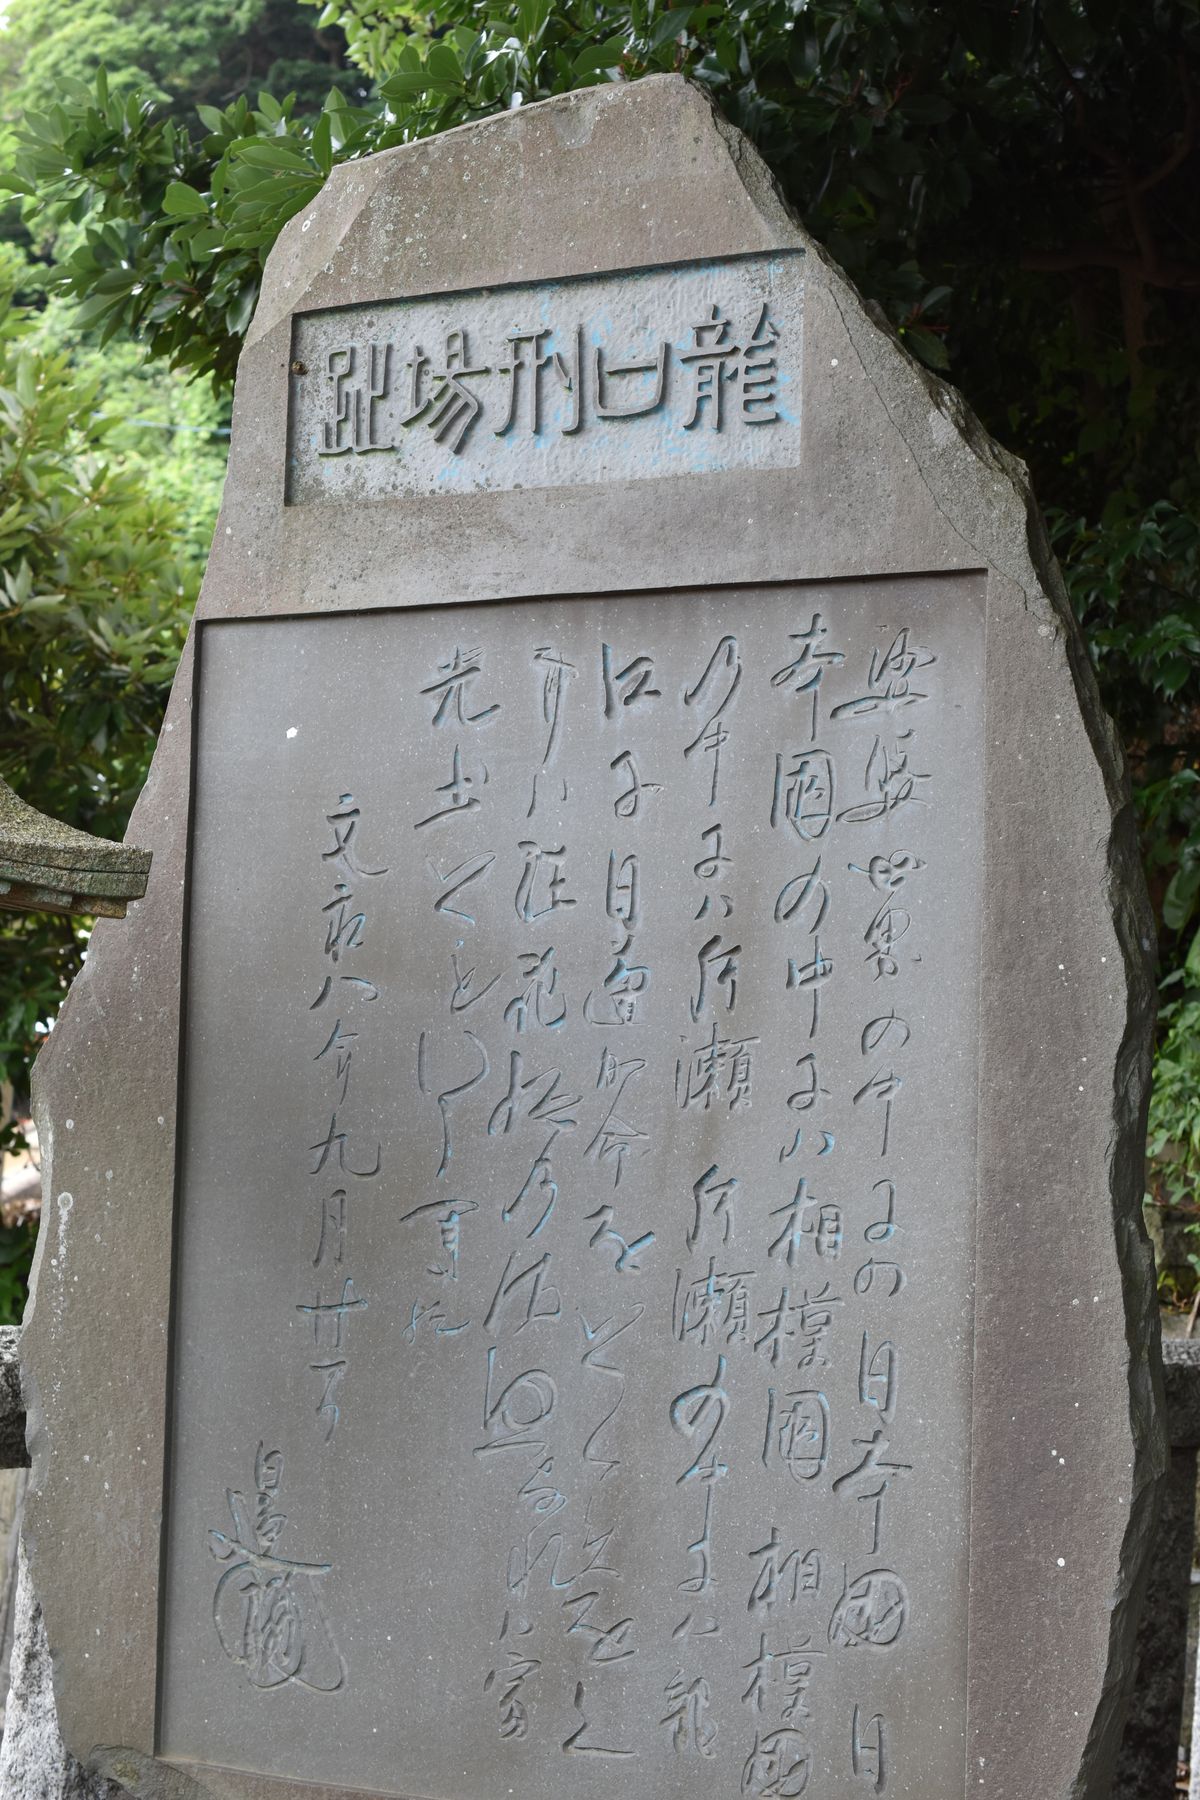 龍口刑場趾
娑婆世界の中にハ日本國日
本國の中にハ相模國相模國
の中にハ片瀬片瀬の中にハ龍
口に日蓮か命をとゝめをく
事ハ法花経の御故なれハ寂
光土とも
文永八年九月廿一日
日蓮